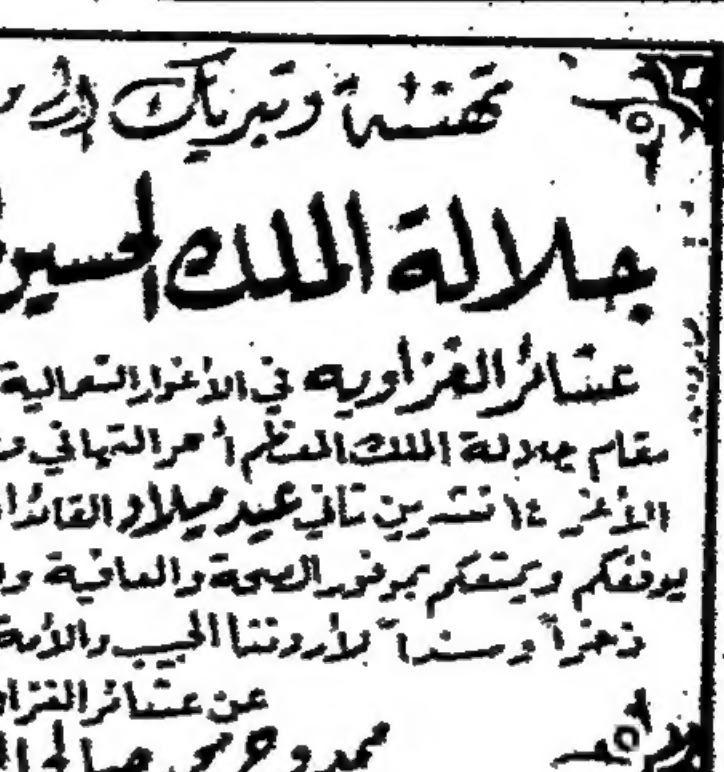 تهنئة وتبريك الى
جلالة الملك الحسين
عشائر الغزاويه في الأغوار الشمالية
مقام جلالة الملك المعظم أحر التهاني
الأغر ١٤ تشرين ثاني عيد ميلاد القائد
يوفقكم ويمتعكم بموفور الصحة والعافية
ذخراً وسنداً لأردننا الحبيب والأمة
عن عشائر الغزا
ممدوح صالح